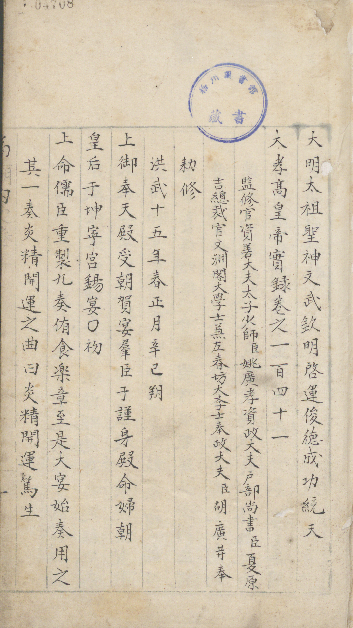 大明太祖聖神文武欽明啓運俊德成功統天
大孝高皇帝實錄卷之一百四十一
監修官資善大夫太子少師臣姚廣孝資政大夫戶部尚書臣夏原
吉總裁官文淵閣大學士兼左春坊大學士奉政大夫臣胡廣等奉
勑修
洪武十五年春正月辛巳朔
上御奉天殿受朝賀宴羣臣于謹身殿命婦朝
皇后于坤寧宮錫宴〇初
上命儒臣重製九奏侑食樂章至是大宴始奏用之
其一奏炎精開運之曲曰炎精開運篤生
藏書